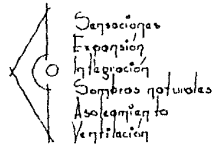 Sensaciones
Expansión
Integración
Sombras naturales
Asoleamiento
Ventilación